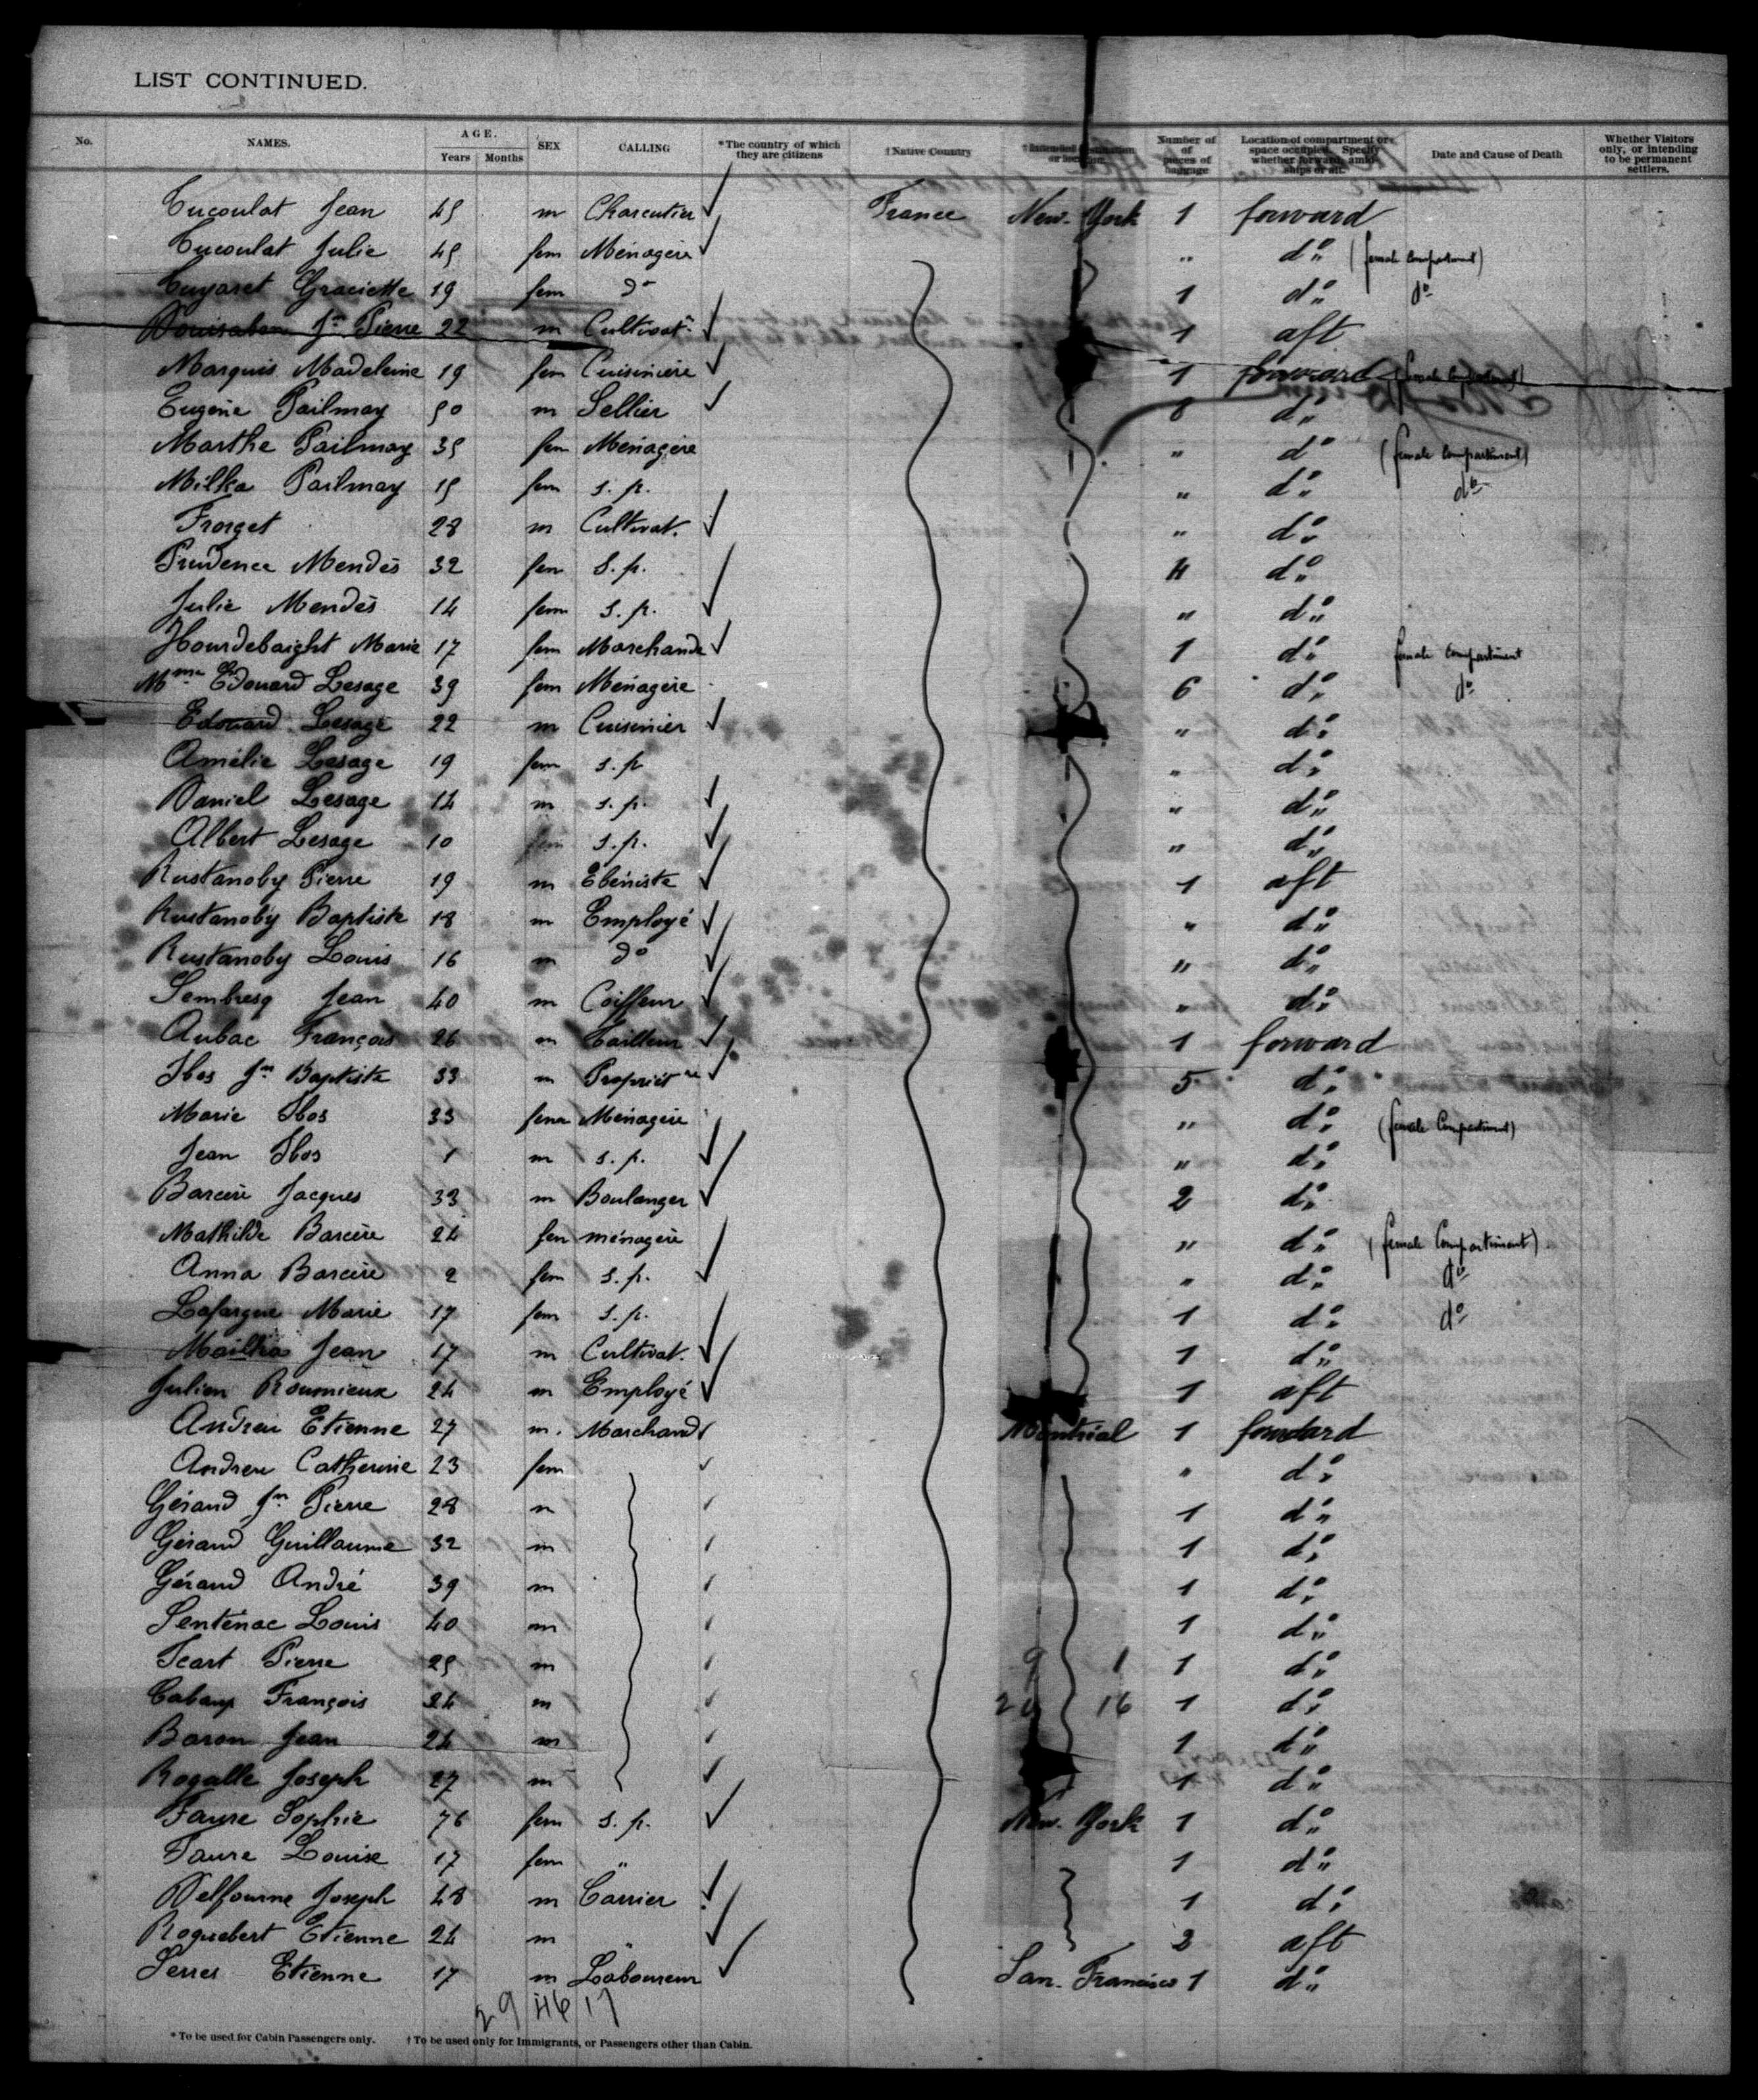 LIST CONTINUED.
No. NAMES. AGE. Years Months SEX CALLING *The country of which they are citizens †Native Country †Intended destination or location. Number of pieces of baggage Location of compartment or space occupied. Specify whether forward, amidships or aft. Date and Cause of Death Whether Visitors only, or intending to be permanent settlers.
Tucoulat Jean 45 m Charcutier ✓ France New-York 1 forward
Tucoulat Julie 45 fem Ménagère ✓ " do (female compartment)
Graciette 19 fem do 1 do do
Jn Pierre 22 m Cultivatr ✓ 1 aft
Marquis Madeleine 19 fem Cuisinière ✓ 1 forward (female compartment)
Eugène Pailmay 50 m Sellier ✓ 8 do
Marthe Pailmay 35 fem Ménagère " do (female compartment)
Milka Pailmay 15 fem s. p. " do do
Frorget 28 m Cultivat. ✓ " do
Prudence Mendès 32 fem S. p. 4 do
Julie Mendès 14 fem s. p. ✓ " do
Hourdebaight Marie 17 fem Marchande ✓ 1 do female compartment
Mme Edouard Lesage 39 fem Ménagère 6 do do
Edouard Lesage 22 m Cuisinier ✓ " do
Amélie Lesage 19 fem s. p " do
Daniel Lesage 14 m s. p. ✓ " do
Albert Lesage 10 s. p. ✓ " do
Rustanoby Pierre 19 m Ebéniste ✓ 1 aft
Rustanoby Baptiste 18 m Employé ✓ " do
Rustanoby Louis 16 m do ✓ " do
Sembresq Jean 40 m Coiffeur ✓ " do
Aubac François 26 m Tailleur ✓ 1 forward
Ibos Jn Baptiste 33 m Propriétre ✓ 5 do
Marie Ibos 33 fem Ménagère " do (female Compartment)
Jean Ibos 1 m s. p. ✓ " do
Barcère Jacques 33 m Boulanger ✓ 2 do
Mathilde Barcère 24 fem ménagère " do (female Compartment)
Anna Barcère 2 fem s. p. ✓ " do do
Lafargue Marie 17 fem s. p. 1 do do
Mailhos Jean 17 m Cultivat. ✓ 1 do
Julien Roumieux 24 m Employé ✓ 1 aft
Andreu Etienne 27 m. Marchand ✓ Montréal 1 forward
Andreu Catherine 23 fem ✓ " do
Géraud Jn Pierre 28 m 1 do
Géraud Guillaume 32 m 1 do
Géraud André 39 m 1 do
Senténac Louis 40 m 1 do
Icart Pierre 25 m 9 1 1 do
Cabaup François 24 m 16 1 do
Baron Jean 24 m 1 do
Rogalle Joseph 27 m ✓ 1 do
Faure Sophie 76 fem s. p. ✓ New-York 1 do
Faure Louise 17 fem " 1 do
Delfourne Joseph 48 m Carrier ✓ 1 do
Roquebert Etienne 24 m " ✓ 2 aft
Serres Etienne 17 m Laboureur ✓ San-Francisco 1 do
29 46 17
* To be used for Cabin Passengers only. † To be used only for Immigrants, or Passengers other than Cabin.